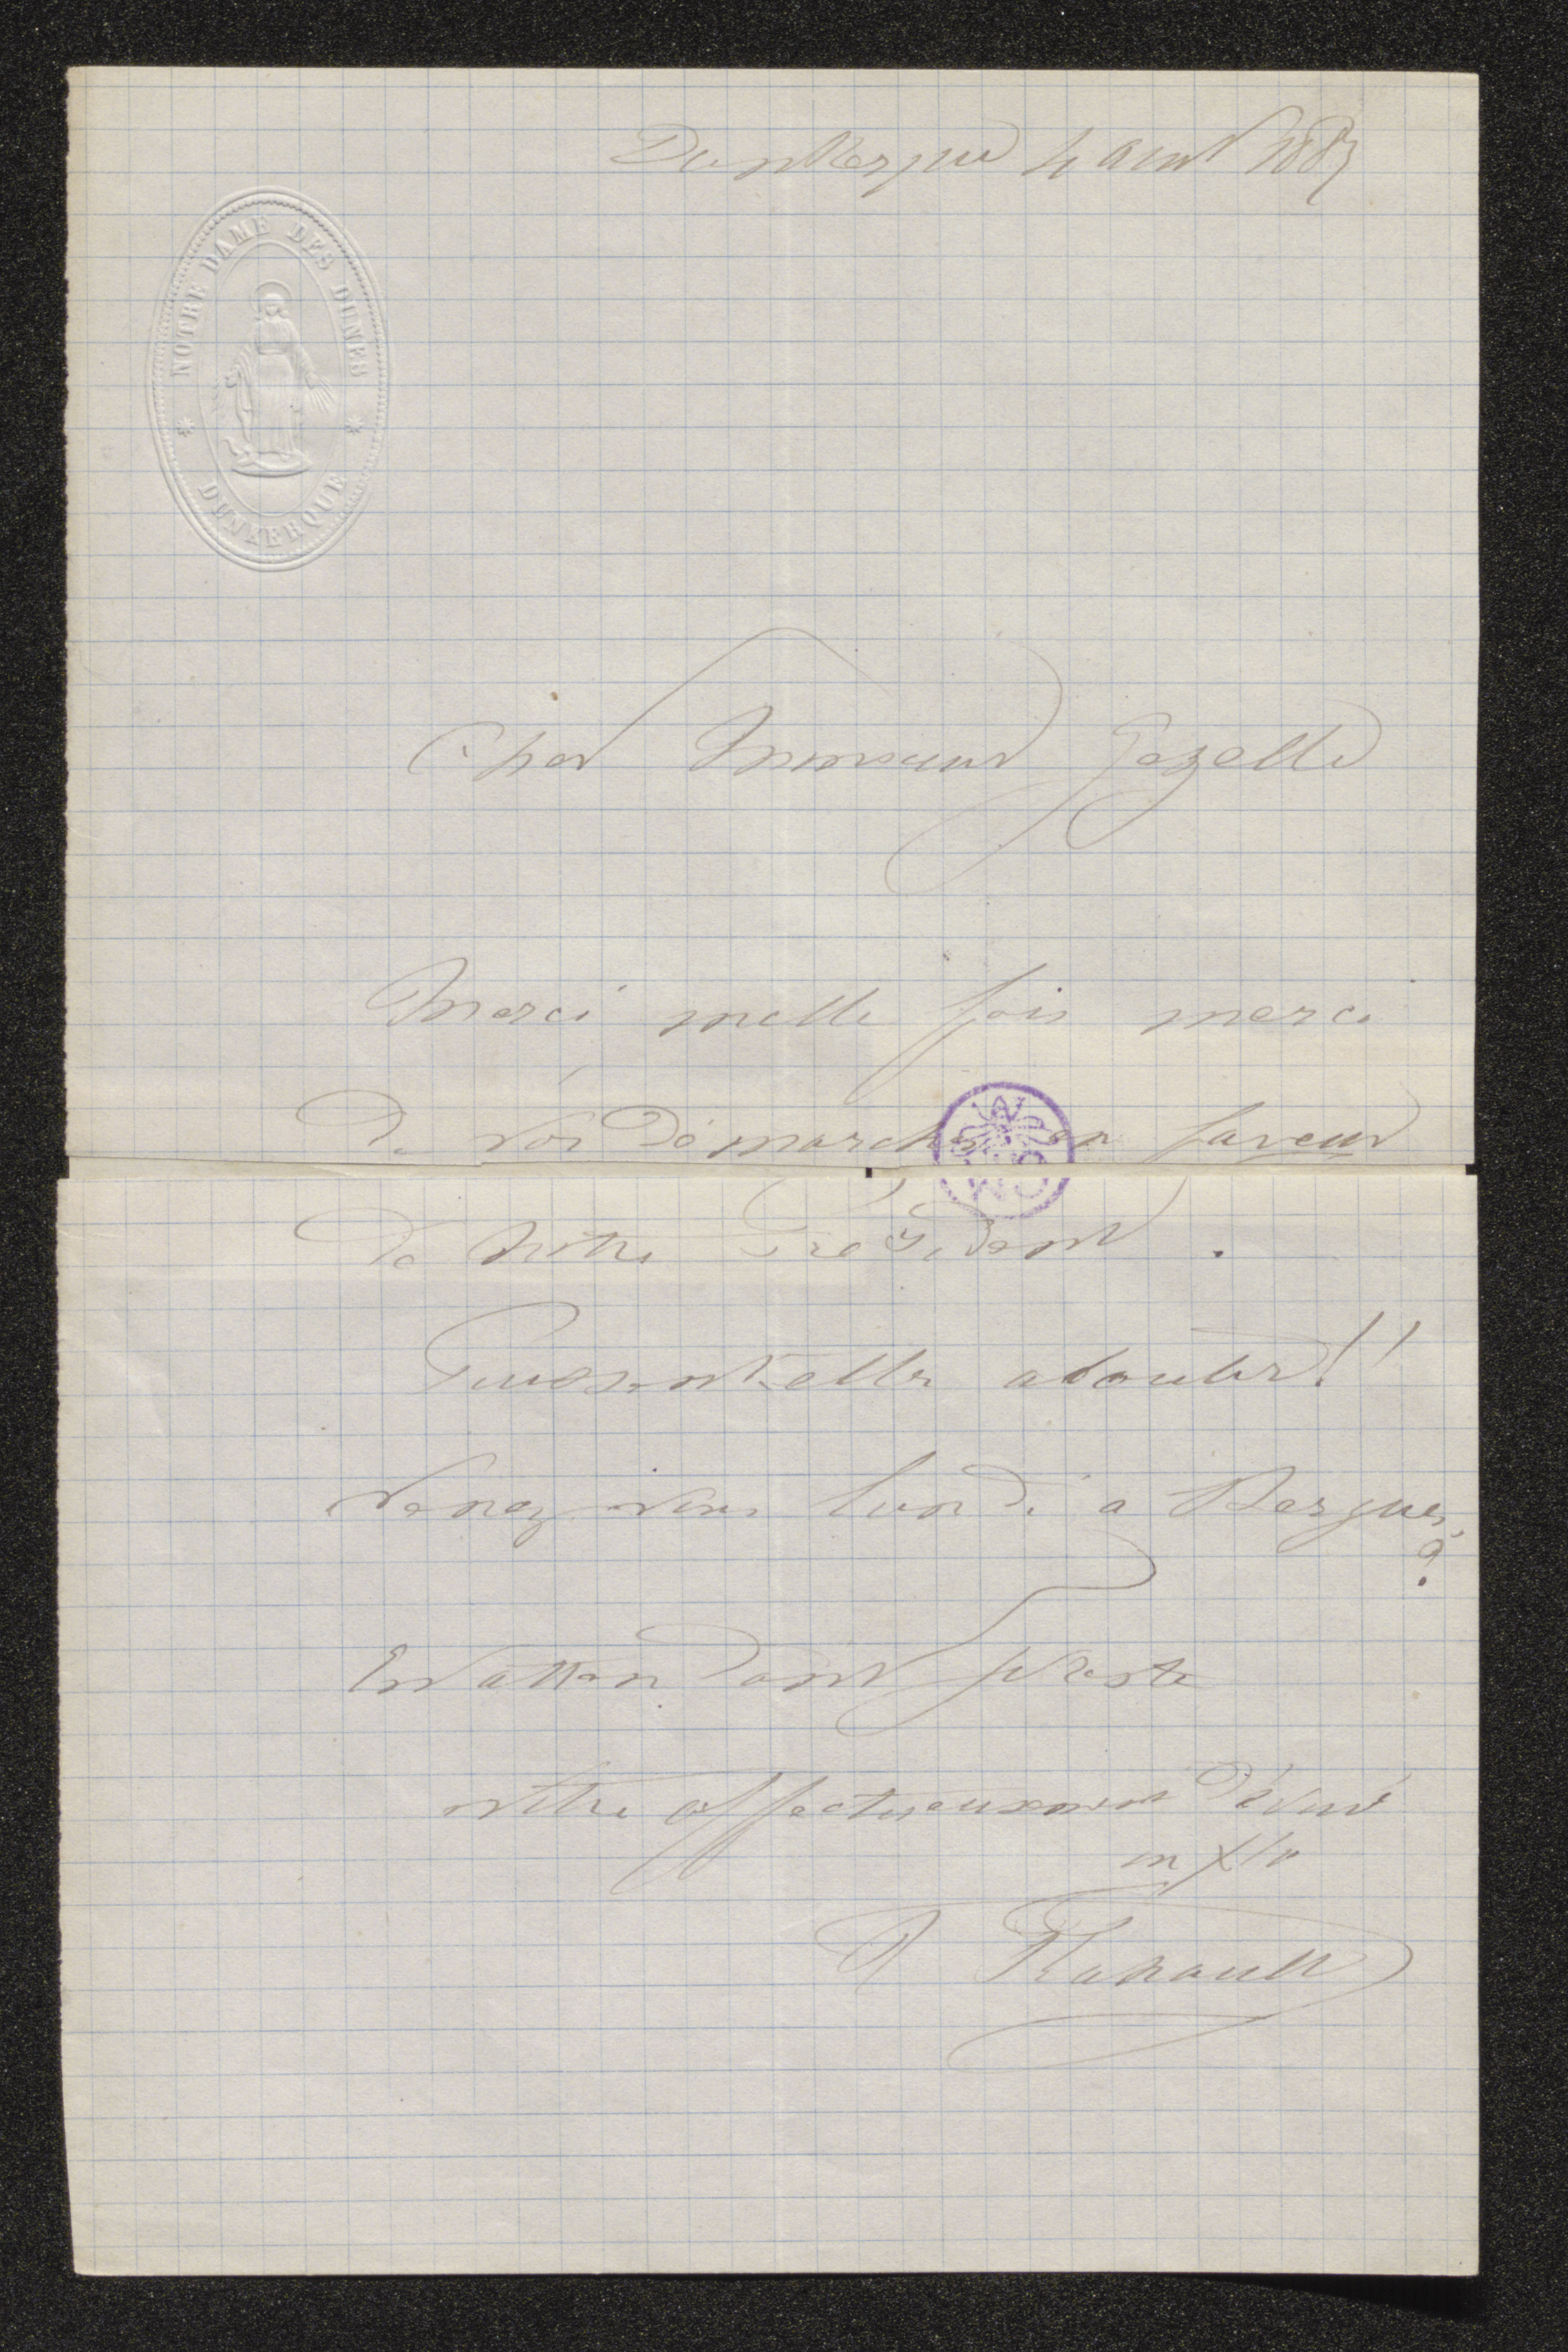 Dunkerque 4 aout 1887
NOTRE DAME DES DUNES
DUNKERQUE
Cher Monsieur Gezelle
Merci mille fois merci
de vos démarches en faveur
de notre Président.
Puissent-elles aboutir!!
Venez vous lundi a Bergues,
?
En attendant je reste
votre affectueusement dévoué
en Xto